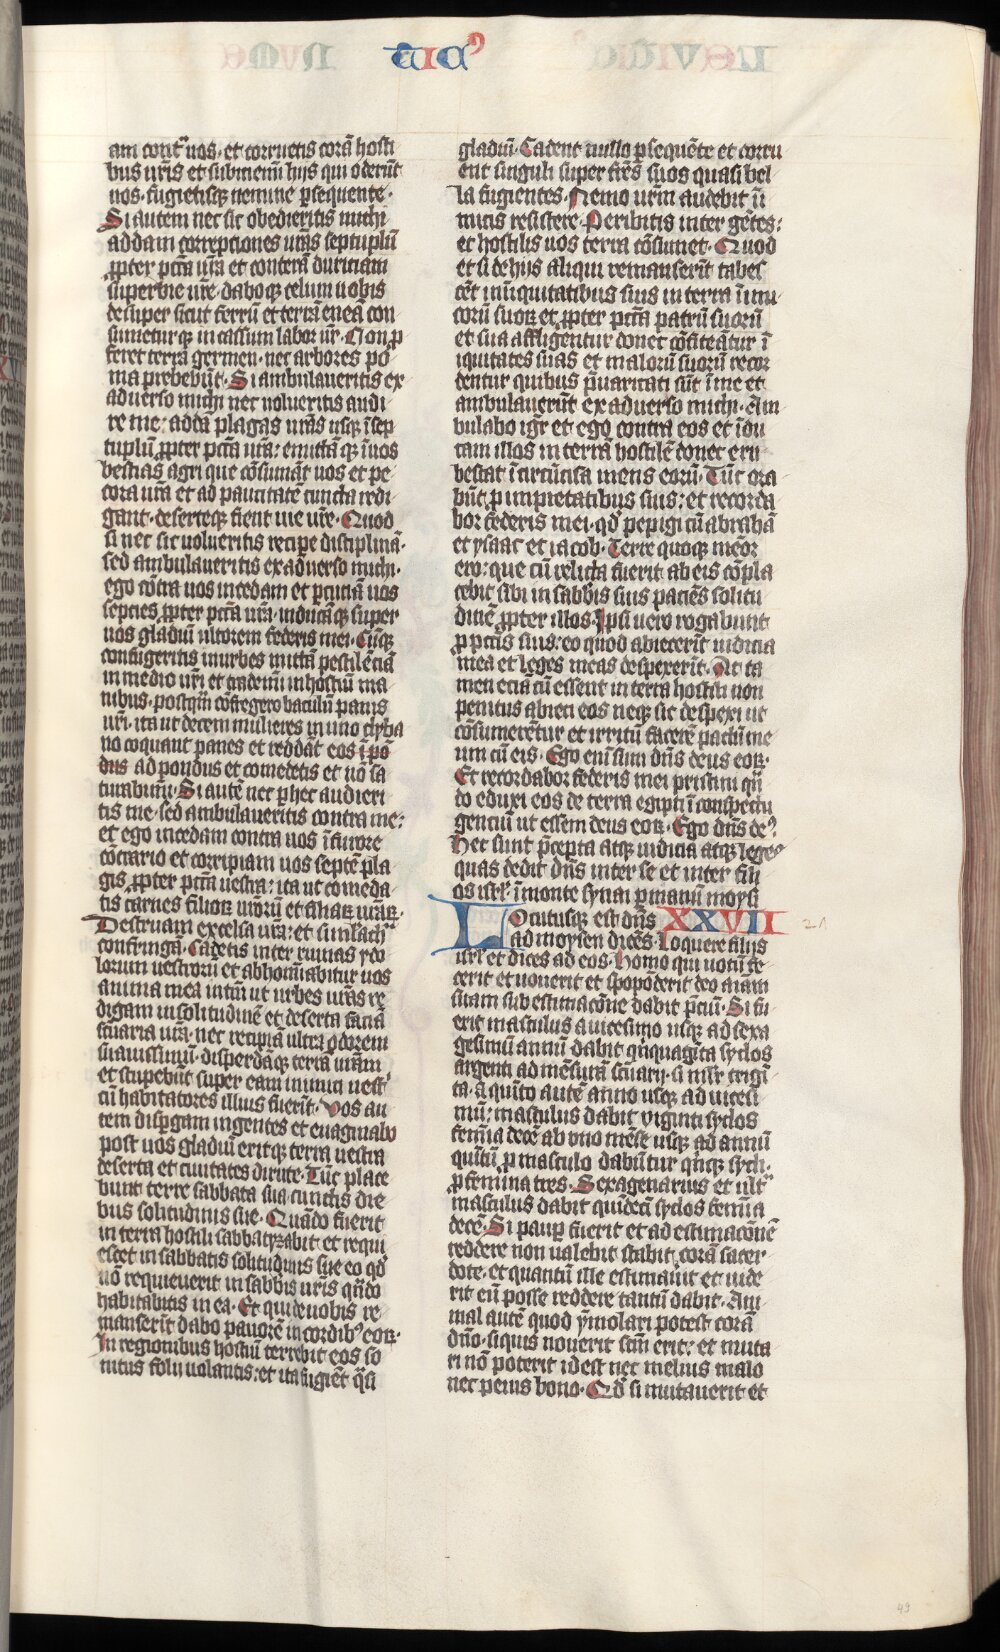 tic⁹
am cont᷑ uos· et corructis corā hosti
bus ur̄is et subiciemī hijs qui oder̄ut
uos· fugietisqꝫ nemine ꝑsequente·
Si autem nec sic obedieritis michi
addam correptiones ur̄as septuplū
ꝓpter pctā ur̄a et conterā duriciam
superbie ur̄e· daboqꝫ celum uobis
desuper sicut ferrū et terrā eneā con
sumeturqꝫ in cassum labor ur̄· Non ꝓ
feret terra germen· nec arbores po
ma prebebūt· Si ambulaueritis ex
aduerso michi nec uolueritis audi
re me: addā plagas ur̄as usqꝫ ī sep
tuplū ꝓpter pctā ur̄a: emittāqꝫ ī uos
bestias agri que cōsumāt uos et pe
cora ur̄a et ad paucitatē cuncta redi
gant· deserteqꝫ fient uie ur̄e· Quod
si nec sic uolueritis recipe disciplinā·
sed ambulaueritis ex aduerso michi·
ego cōtra uos incedam et ꝑcuciā uos
septies ꝓpter pctā ur̄a· inducāqꝫ super
uos gladiū ultorem federis mei· Cūqꝫ
confugeritis in urbes mittā pestilēciā
in medio ur̄i et trademī in hostiū ma
nibus· postqm̄ cōfregero baculū panis
ur̄i· ita ut decem mulieres in uno clyba
no coquant panes et reddāt eos ī po
dus ad pondus et comedetis et nō sa
turabimī· Si autē nec ꝑ hec audieri
tis me· sed ambulaueritis contra me:
et ego incedam contra uos ī furore
cōtrario et corripiam uos septē pla
gis ꝓpter pctā uestra: ita ut comeda
tis carnes filioꝝ ur̄oꝝ et filiaꝝ ur̄aꝝ·
Destruam excelsa ur̄a: et simlach᷑
confringā· Cadetis inter ruinas ydo
lorum uestrorū et abhomīabitur uos
anima mea intm̄ ut urbes ur̄as re
digam in solitudinē et deserta faciā
sc̄uaria ur̄a· nec recipiā ultra odorem
suauissimū· disperdāqꝫ terrā ur̄am
et stupebūt super eam inimici uest᷑
cū habitatores illius fuerīt· Vos au
tem dispgam in gentes et euaginabo
post uos gladiū eritqꝫ terra uestra
deserta et ciuitates dirute· Tūc place
bunt terre sabbata sua cunctis die
bus solitudinis sue· Quādo fuerit
in terra hostili sabbatyzabit et requi
escet in sabbatis solitudinis sue eo qd̄
nō requieuerit in sabbis ur̄is qn̄do
habitabitis in ea· Et qui de uobis re
manserīt dabo pauorē in cordib⁹ eoꝝ·
In regionibus hostiū terrebit eos so
nitus folij uolantis: et ita fugiēt qͣsi
gladiū· Cadent nullo ꝑsequēte et corru
ent singuli super fr̄es suos quasi bel
la fugientes· Nemo ur̄m audebit ī
micis resistere· Peribitis inter gētes:
et hostilis uos terra cōsumet· Quod
et si de hijs aliqui remanserīt tabes
cēt iniquitatibus suis in terra īimi
corū suoꝝ et ꝓpter pctā patrū suorū
et sua affligentur donec cōfiteātur ī
iquitates suas et malorū suorū recor
dentur quibus p̄uaricati sūt ī me et
ambulauerūt ex aduerso michi· Am
bulabo igr̄ et ego contra eos et īdu
cam illos in terrā hostilē donec eru
bescat ī circūcisa mens eorū· Tūc ora
būt ꝓ impietatibus suis: et recorda
bor federis mei· qd̄ pepigi cū abrahā
et ysaac et iacob· Terre quoqꝫ meōr
ero: que cū relicta fuerit ab eis cōpla
cebit sibi in sabbis suis paciēs solitu
dinē ꝓpter illos· Ipsi uero rogabunt
ꝓ pctīs suis: eo quod abiecerīt iudicia
mea et leges meas despexerīt· At ta
men eciā cū essent in terra hostili non
penitus abieci eos neqꝫ sic despexi ut
cōsumerētur et irritū facerē pactū me
um cū eis· Ego enī sum dn̄s deus eoꝝ·
Et recordabor federis mei pristini qn̄
do eduxi eos de terra egipti ī conspectu
genciū ut essem deus eoꝝ· Ego dn̄s de⁹·
Hec sunt p̄cepta atqꝫ iudicia atqꝫ leges
quas dedit dn̄s inter se et inter fili
os isrl̄· ī monte synai ꝑ manū moysi
Locutusqꝫ est dn̄s XXVII
ad moysen dicēs· Loquere filijs
isrl̄ et dices ad eos· Homo qui uotū fe
cerit et uouerit et spopōderit deo aīam
suam sub estimacōne dabit p̄ciū· Si fu
erit masculus a uicesimo usqꝫ ad sexa
gesimū annū dabit qn̄quagīta syclos
argenti ad mēsurā sc̄uarij· si mlr̄ trigī
ta· a quīto autē anno usqꝫ ad uicesi
mū: masculus dabit viginti syclos
femīa decē· ab vno mēse usqꝫ ad annū
quītū ꝓ masculo dabūtur qn̄qꝫ sycli·
ꝓ femina tres· Sexagenarius et ult᷑
masculus dabit quīdecī syclos femīa
decē· Si paupꝑ fuerit et ad estimacōnē
reddere non ualebit stabit corā sacer
dote· et quantū ille estimau̅it et uide
rit eū posse reddere tantū dabit· Ani
mal autē quod ymolari potest corā
dn̄o· siquis uouerit scm̄ erit: et muta
ri nō poterit id est nec melius malo
nec peius bono· Qd̄ si mutauerit et
21
49